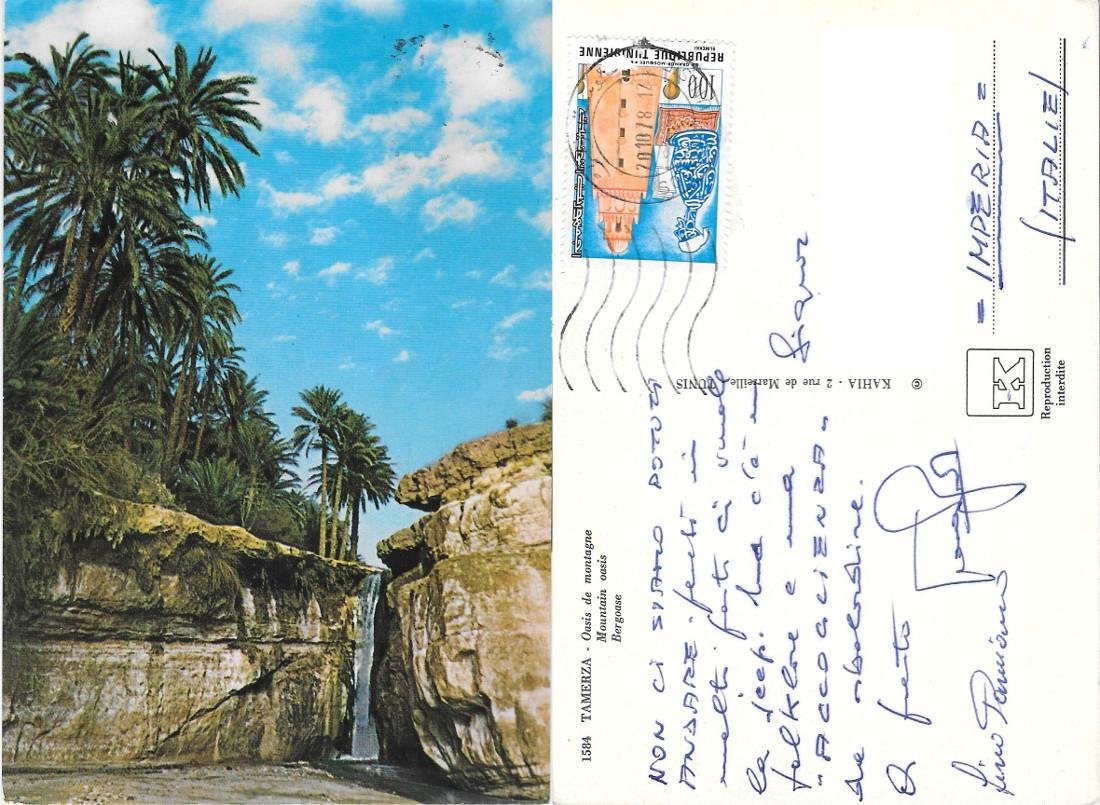 1584 TAMERZA - Oasis de montagne
Mountain oasis
Bergoase
NON CI SIAMO POTUTI
ANDARE.
molti posti ci vuole
la jeep. Ma c'è un
folklore e una
"ACCOGLIENZA"
da sbalordire.
A presto
KAHIA - 2 rue de Marseille TUNIS
©
REPUBLIQUE TUNISIENNE
100
20 10 78 12
Signor
= IMPERIA =
(ITALIE)
K
Reproduction
interdite